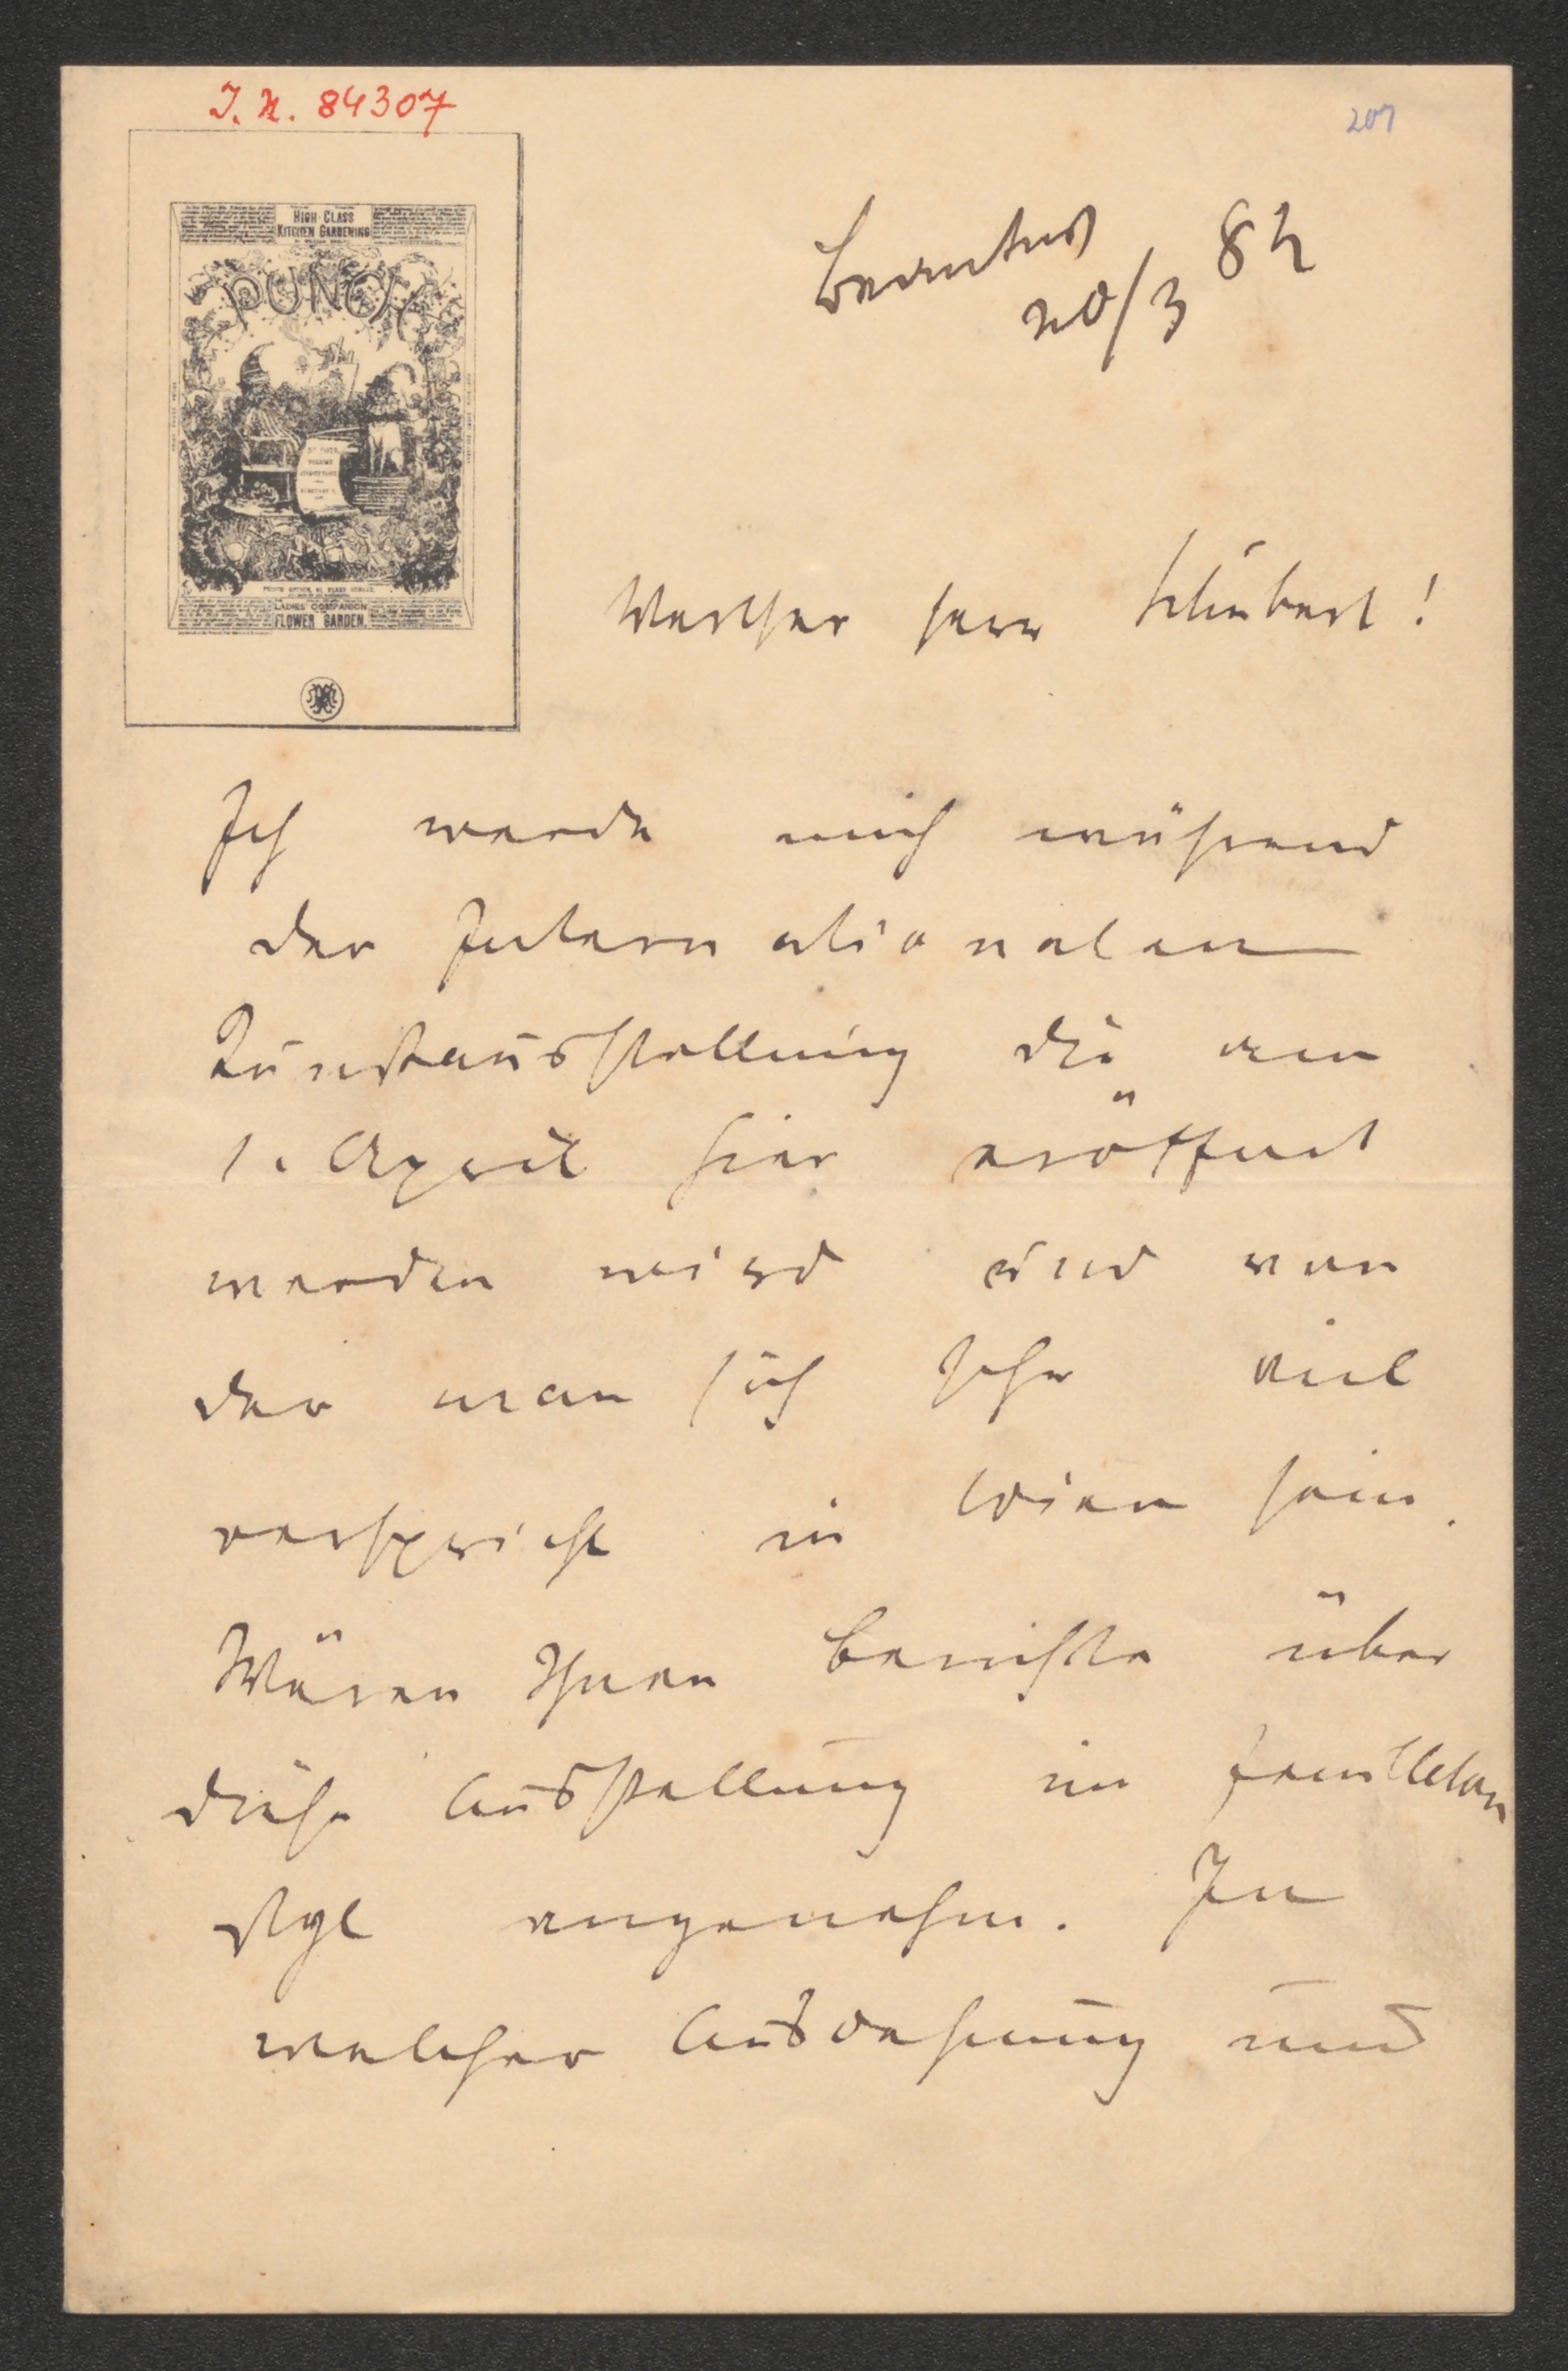 I.N. 84307
207
HIGH CLASS
KITCHEN GARDENING
PUNCH
LADIES' COMPANION
FLOWER GARDEN.
20/3 82
Werther Herr Schubert!
Ich werde mich während
der Internationalen
Kunstausstellung die am
1. April hier eröffnet
werden wird und von
der man sich sehr viel
verspricht in Wien sein.
Wären Ihnen Berichte über
diese Ausstellung im Feuilleton
styl angenehm. In
welcher Ausdehnung und